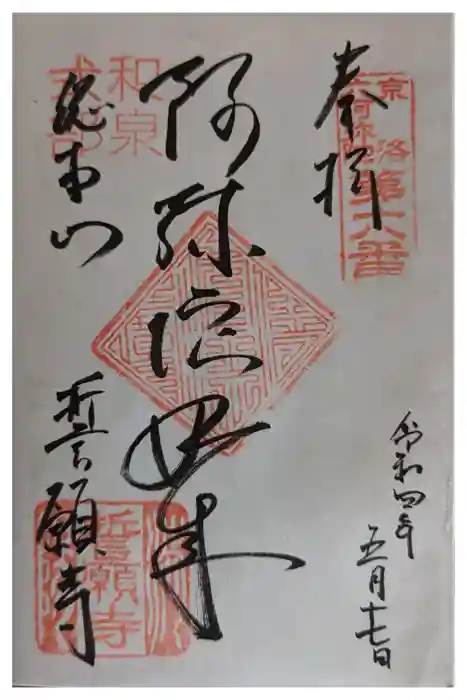 奉拝
京洛
六阿弥陀
第六番
令和四年
五月十七日
阿弥陀如来
和泉
式部
総本山
誓願寺
誓願寺